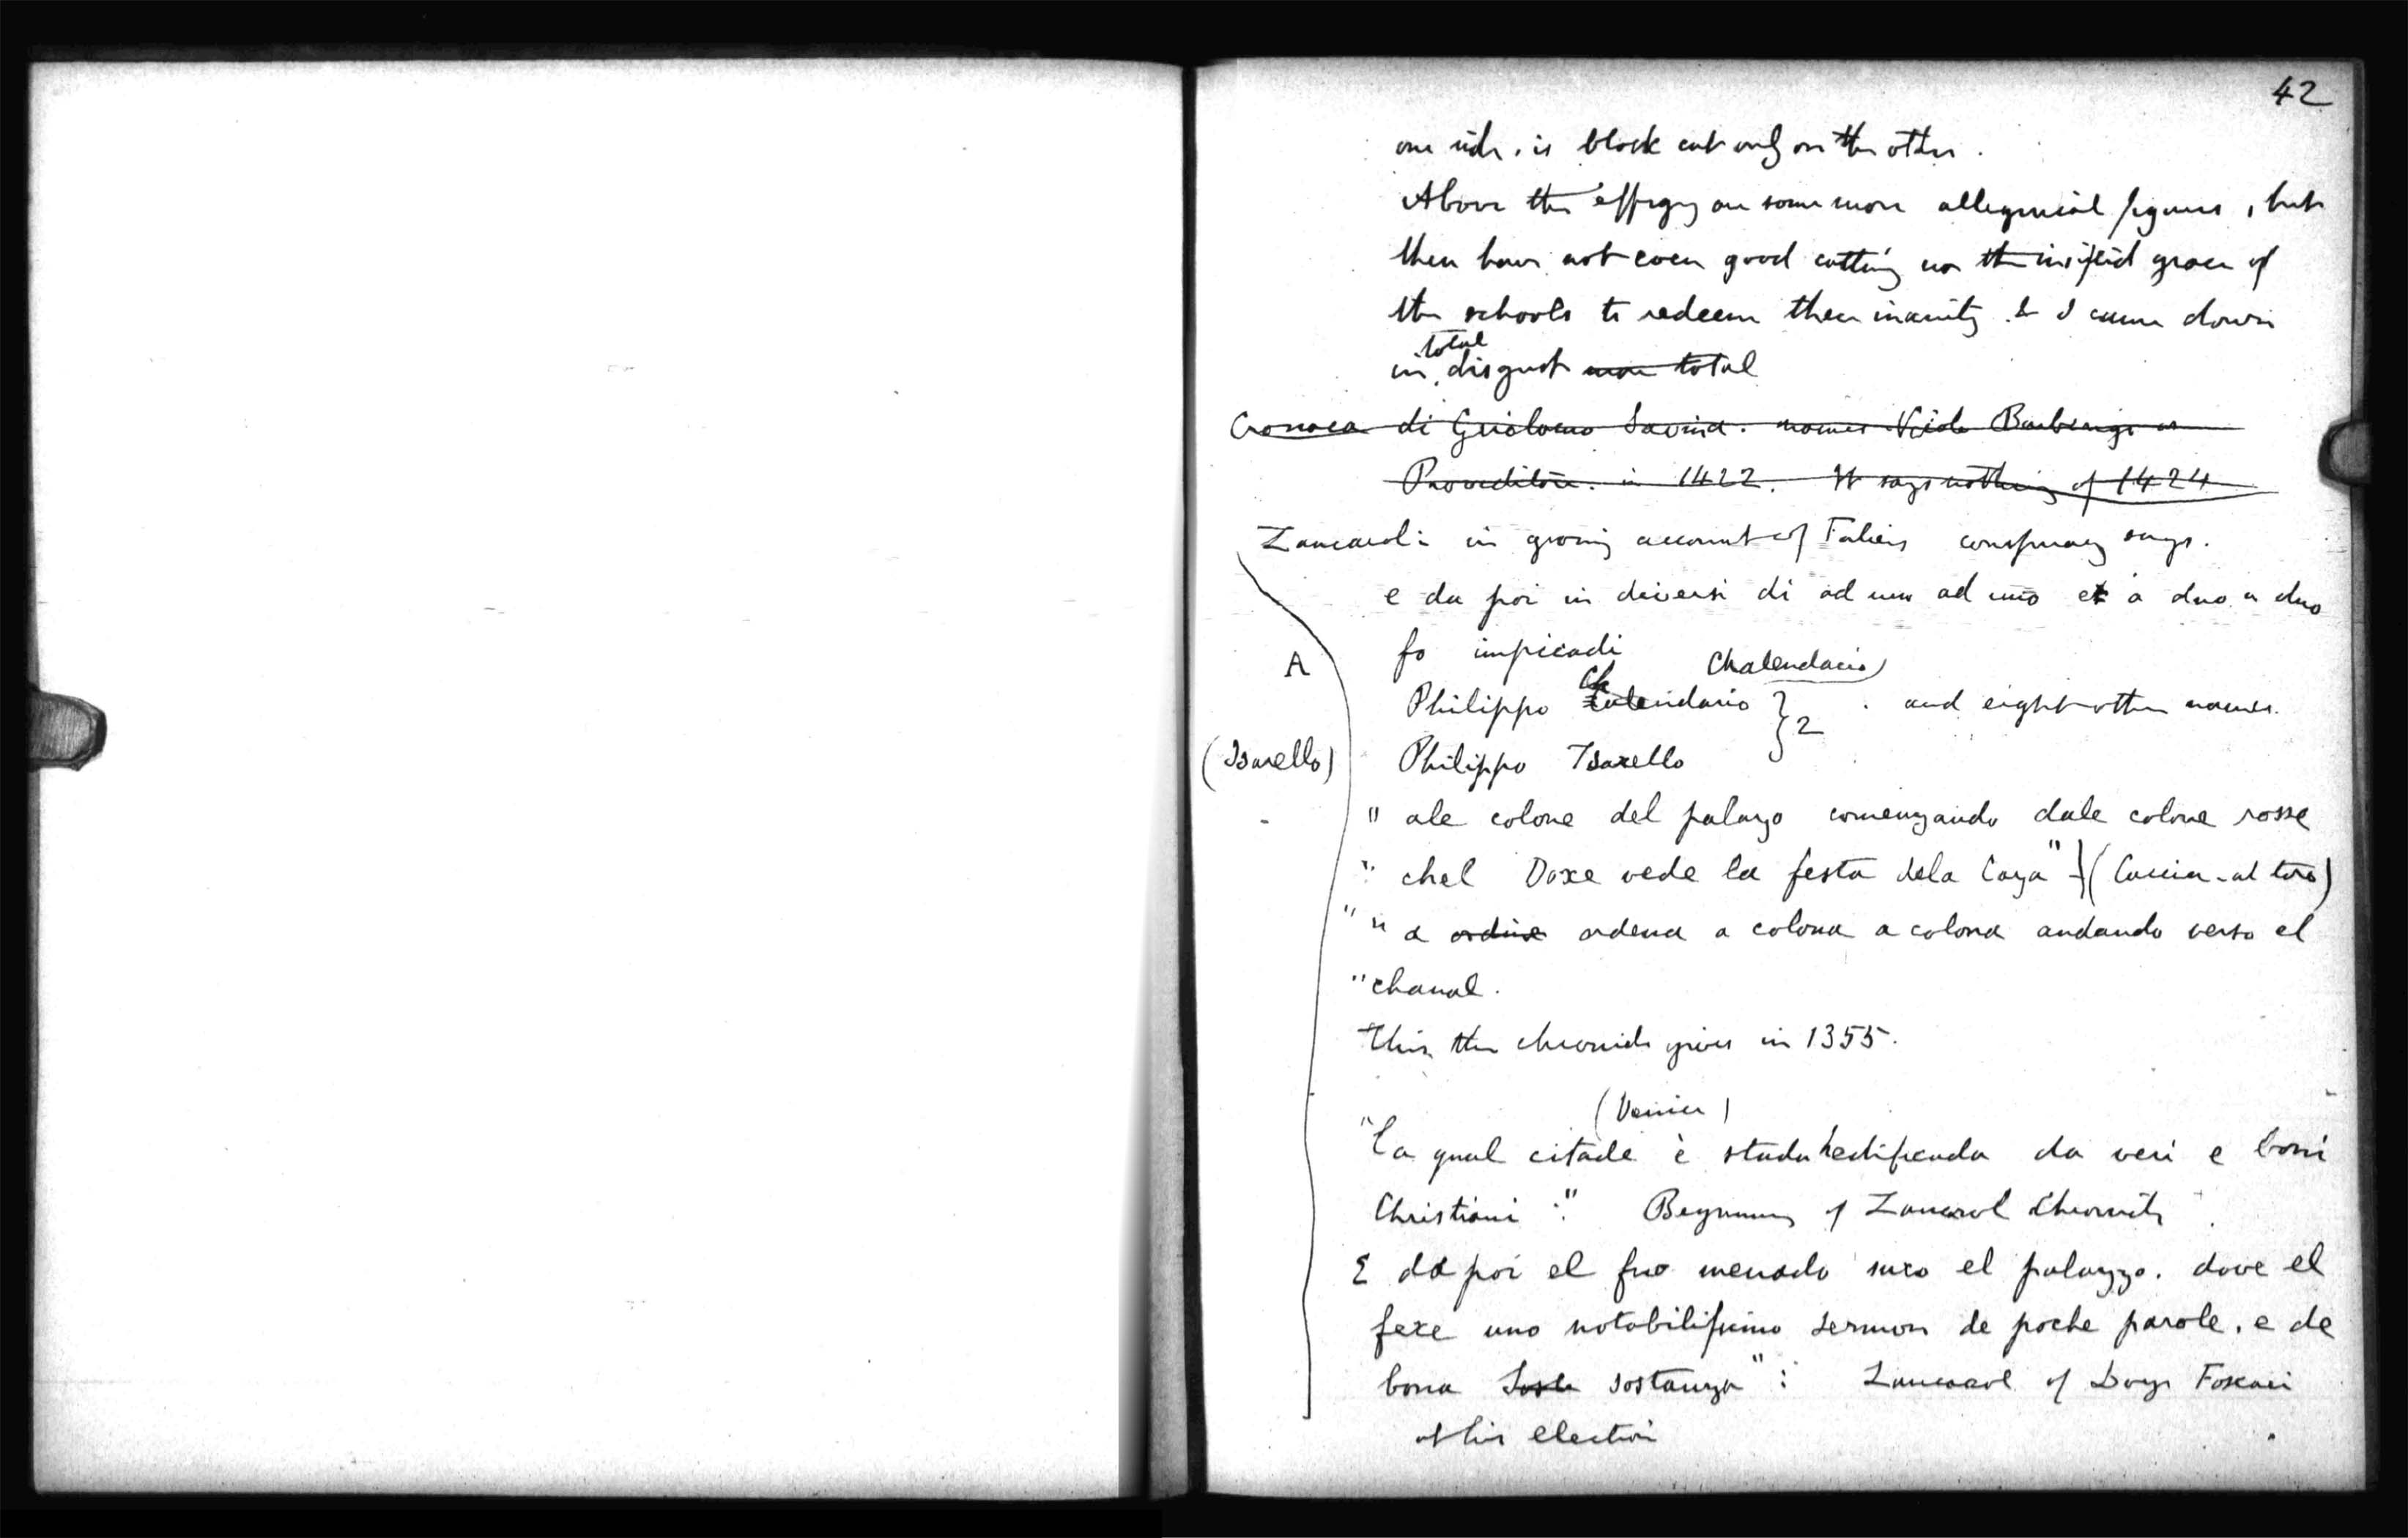 42
one side, is block cut only on the other.
Above the effigy are some more allegorical figures, but
these have not even good cutting nor the insipid grace of
the schools to redeem their inanity & I came down
in total disgust more total
Cronaca di Guiolomo Savina. names Nicolo Barbarigo as
Proveditore. in 1422. It says nothing of 1424
Zancarol: in giving account of Faliers conspiracy says.
e da poi in diversi di ad uno ad uno et a duo a duo
fo impicadi
Chalendario
A
Philippo Chalendario } 2 . and eight other names.
(Isarello) Philippo Isarello
" ale colone del palazo comenzando dale colone rosse
" chel Doxe vede la festa dela Caza" (Caccia al toro)
" " a ordine ordena a colona a colona andando verso el
" chanal.
This the chronicle gives in 1355.
(Venice)
"La qual citade è stada hedificada da veri e boni
Christiani :" Beginning of Zancarol Chronicle.
E da poi el fuo menado suxo el palazzo. dove el
fexe uno notabilissimo sermon de poche parole, e de
bona Soste sostanza": Zancarol of Doge Foscari
at his election